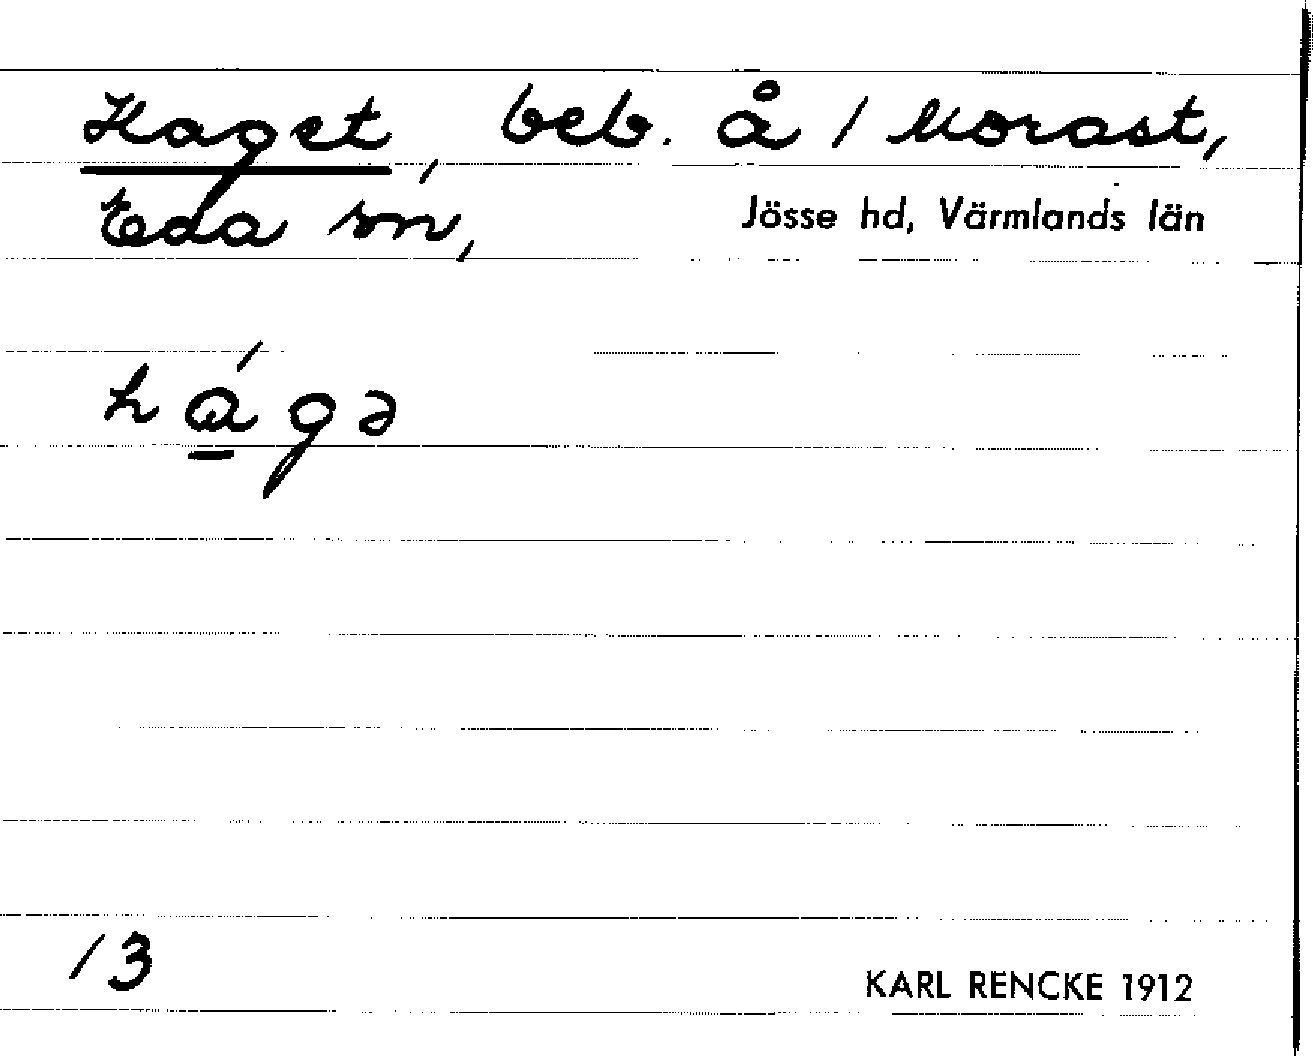 Haget, beb. å 1 Morast,
Eda sn, Jösse hd, Värmlands län
há̱gə
13
KARL RENCKE 1912